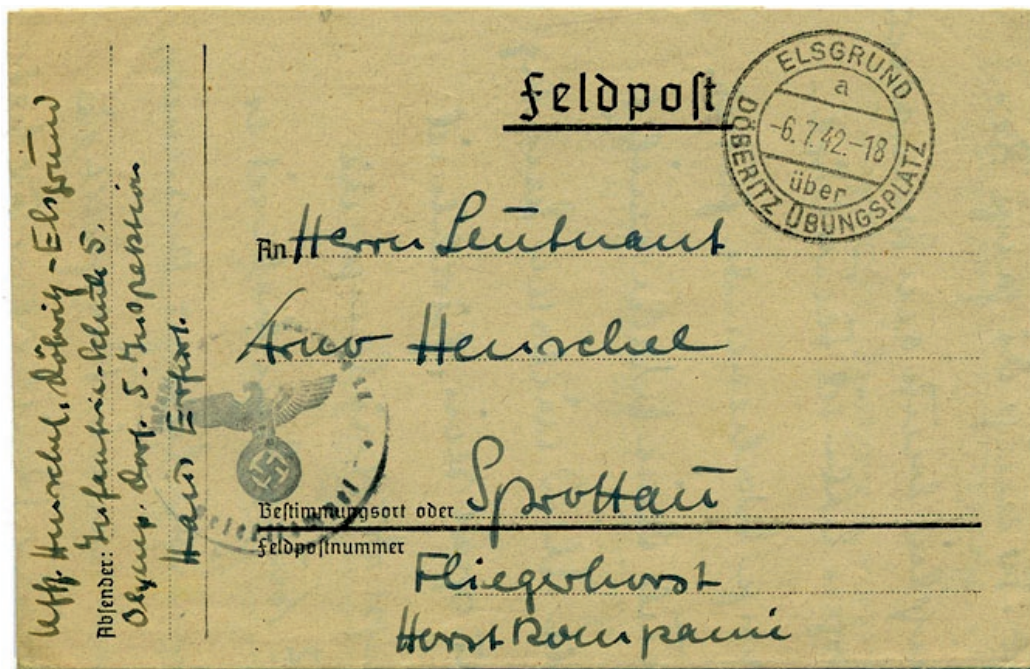 Feldpost
ELSGRUND
a
-6.7.42.-18
über
DÖBERITZ ÜBUNGSPLATZ
An Herrn Leutnant
Arno Henschel
Bestimmungsort oder Sprottau
Feldpostnummer
Fliegerhorst
Horstkompanie
Absender: Uffz. Henschel, Döberitz-Elsgrund
Infanterie-Schule 5.
Olymp. Dorf. 5. Inspektion
Haus Erfurt.